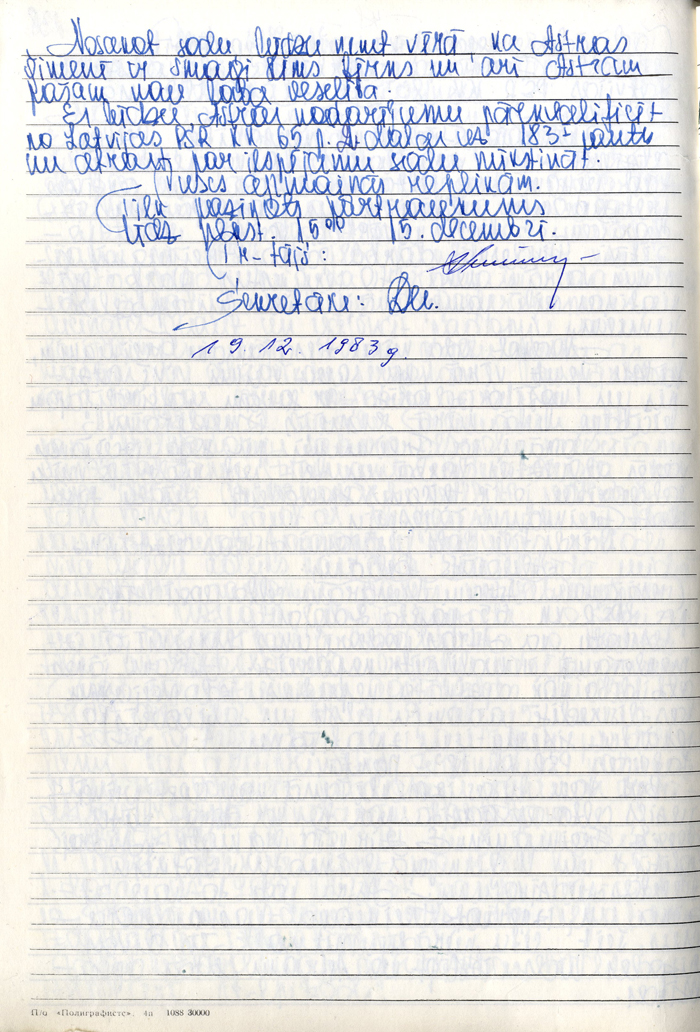 Nosakot sodu lūdzu ņemt vērā, ka Astras
ģimenē ir smagi slims bērns un arī Astram
pašam nav laba veselība.
Es lūdzu, Astras nodarījumu pārkvalificēt
no Latvijas PSR KK 65. p. 2. daļas uz 183 pantu
un atrast par iespējamu sodu mīkstināt.
Puses apmainās replikām.
Tiek paziņots pārtraukums
līdz plkst. 15⁰⁰ 15. decembrī.
Pr-tājs:
Sekretāre:
19. 12. 1983 g.
П/о «Полиграфистс». 4а 1088 30000